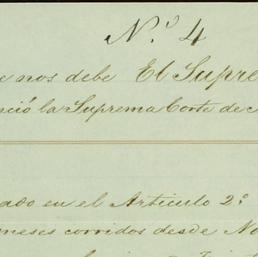 N.º 4
e nos debe El Supre
nció la Suprema Corte de
ado en el Articulo 2º
meses corridos desde No